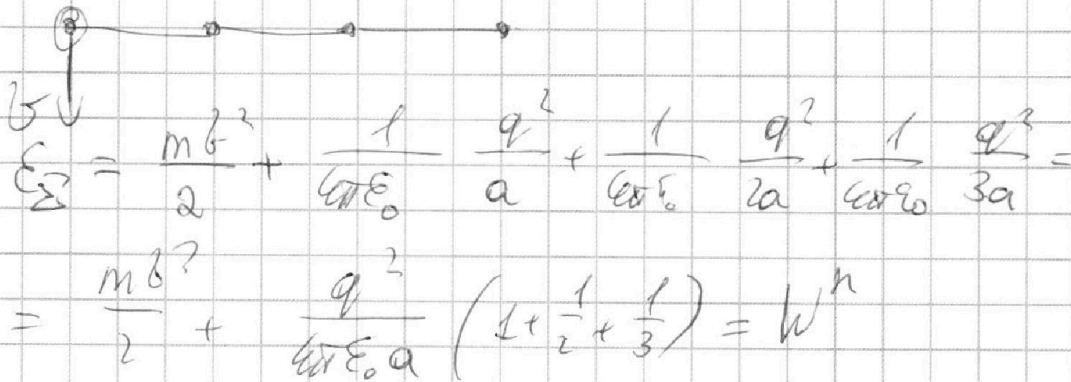 υ
ε_Σ = mυ²/2 + 1/(4πε₀) q²/a + 1/(4πε₀) q²/(2a) + 1/(4πε₀) q²/(3a) =
= mυ²/2 + q²/(4πε₀a) (1 + 1/2 + 1/3) = Wⁿ